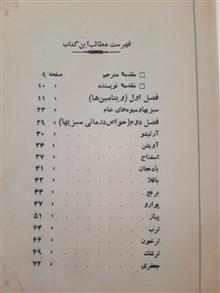 فهرست مطالب این کتاب
□ مقدمه مترجم صفحه ۹
□ مقدمه نویسنده » ۱۰
فصل اول (ویتامین‌ها) » ۱۱
سبزیها و میوه‌های خام » ۲۳
فصل دوم (خواص درمانی سبزیها) » ۲۹
آرتیشو » ۳۰
آویشن » ۳۴
اسفناج » ۳۷
بادنجان » ۴۱
باقلا » ۴۳
برنج » ۴۴
پوارو » ۴۷
پیاز » ۵۱
ترب » ۶۴
ترخون » ۶۶
ترشک » ۶۹
جعفری » ۷۲